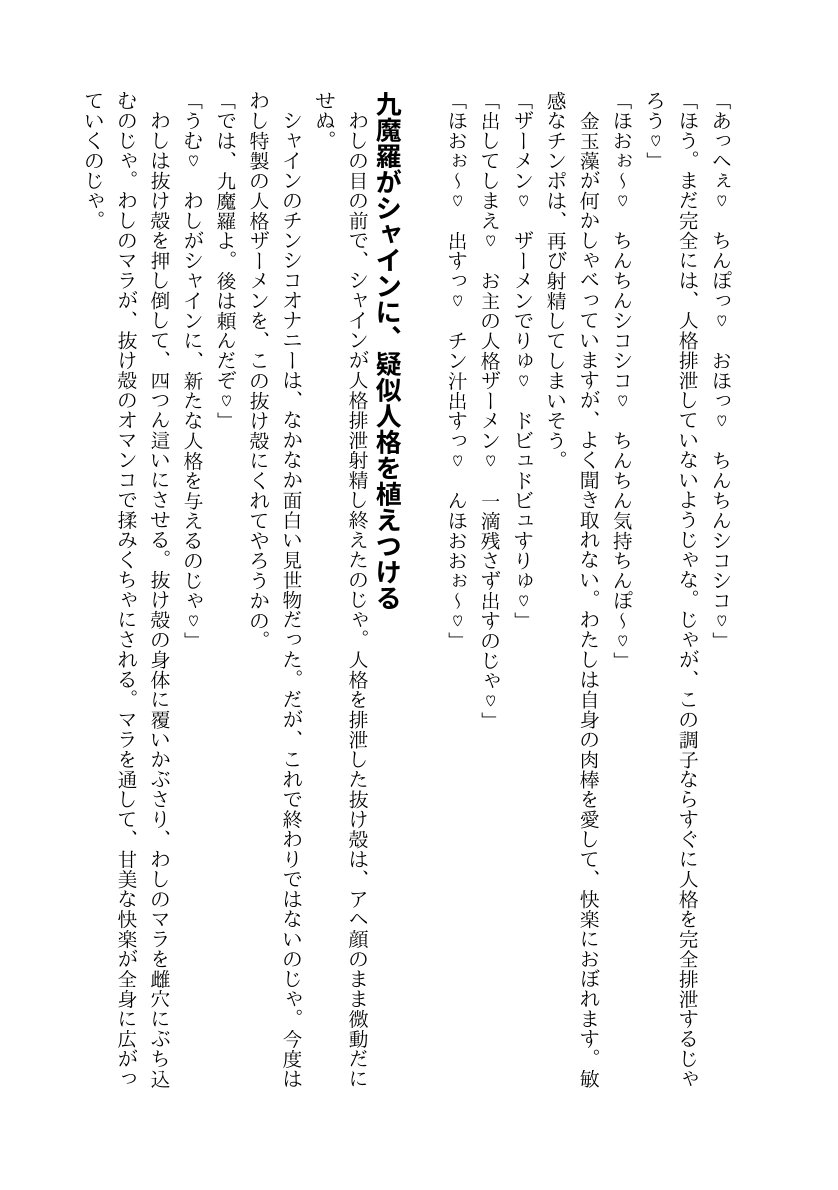 「あっへぇ♡　ちんぽっ♡　おほっ♡　ちんちんシコシコ♡」
「ほう。まだ完全には、人格排泄していないようじゃな。じゃが、この調子ならすぐに人格を完全排泄するじゃ
ろう♡」
「ほおぉ～♡　ちんちんシコシコ♡　ちんちん気持ちんぽ～♡」
　金玉藻が何かしゃべっていますが、よく聞き取れない。わたしは自身の肉棒を愛して、快楽におぼれます。敏
感なチンポは、再び射精してしまいそう。
「ザーメン♡　ザーメンでりゅ♡　ドビュドビュすりゅ♡」
「出してしまえ♡　お主の人格ザーメン♡　一滴残さず出すのじゃ♡」
「ほおぉ～♡　出すっ♡　チン汁出すっ♡　んほおおぉ～♡」
九魔羅がシャインに、疑似人格を植えつける
　わしの目の前で、シャインが人格排泄射精し終えたのじゃ。人格を排泄した抜け殻は、アヘ顔のまま微動だに
せぬ。
　シャインのチンシコオナニーは、なかなか面白い見世物だった。だが、これで終わりではないのじゃ。今度は
わし特製の人格ザーメンを、この抜け殻にくれてやろうかの。
「では、九魔羅よ。後は頼んだぞ♡」
「うむ♡　わしがシャインに、新たな人格を与えるのじゃ♡」
　わしは抜け殻を押し倒して、四つん這いにさせる。抜け殻の身体に覆いかぶさり、わしのマラを雌穴にぶち込
むのじゃ。わしのマラが、抜け殻のオマンコで揉みくちゃにされる。マラを通して、甘美な快楽が全身に広がっ
ていくのじゃ。